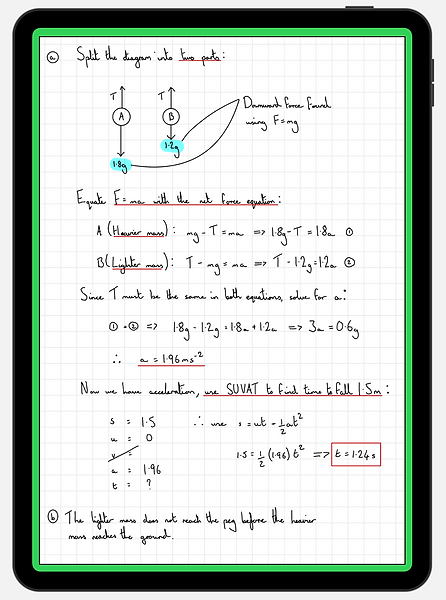 a Split the diagram into two parts:
T T
A B
Downward force found
using F=mg
1.2g
1.8g
Equate F=ma with the net force equation:
A (Heavier mass): mg-T=ma => 1.8g-T=1.8a ①
B (Lighter mass): T-mg=ma => T-1.2g=1.2a ②
Since T must be the same in both equations, solve for a:
①+② => 1.8g-1.2g=1.8a+1.2a => 3a=0.6g
∴ a=1.96ms⁻²
Now we have acceleration, use SUVAT to find time to fall 1.5m:
s = 1.5 ∴ use s=ut-½at²
u = 0
v = 1.5=½(1.96)t² => t=1.24s
a = 1.96
t = ?
b The lighter mass does not reach the peg before the heavier
mass reaches the ground.